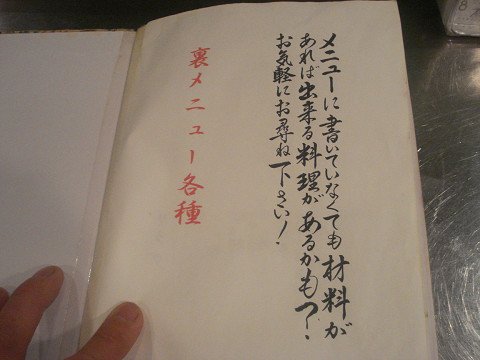 メニューに書いていなくても材料が
あれば出来る料理があるかも?
お気軽にお尋ね下さい!
裏メニュー各種
8